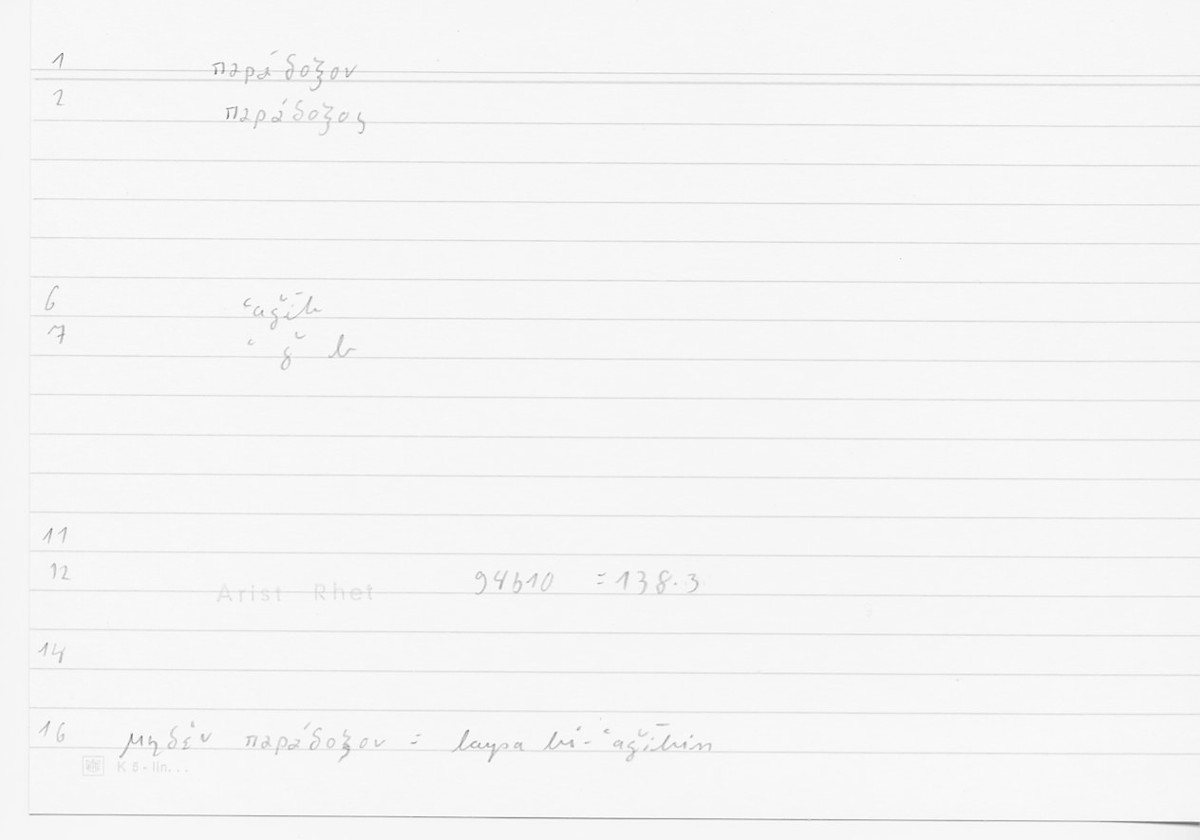 1 παράδοξον
2 παράδοξος
6 ʿaǧīb
7 ʿ ǧ b
11
12 Arist Rhet 94b10 = 138.3
14
16 μηδὲν παράδοξον = laysa bi-ʿaǧībin
K 5 - lin...